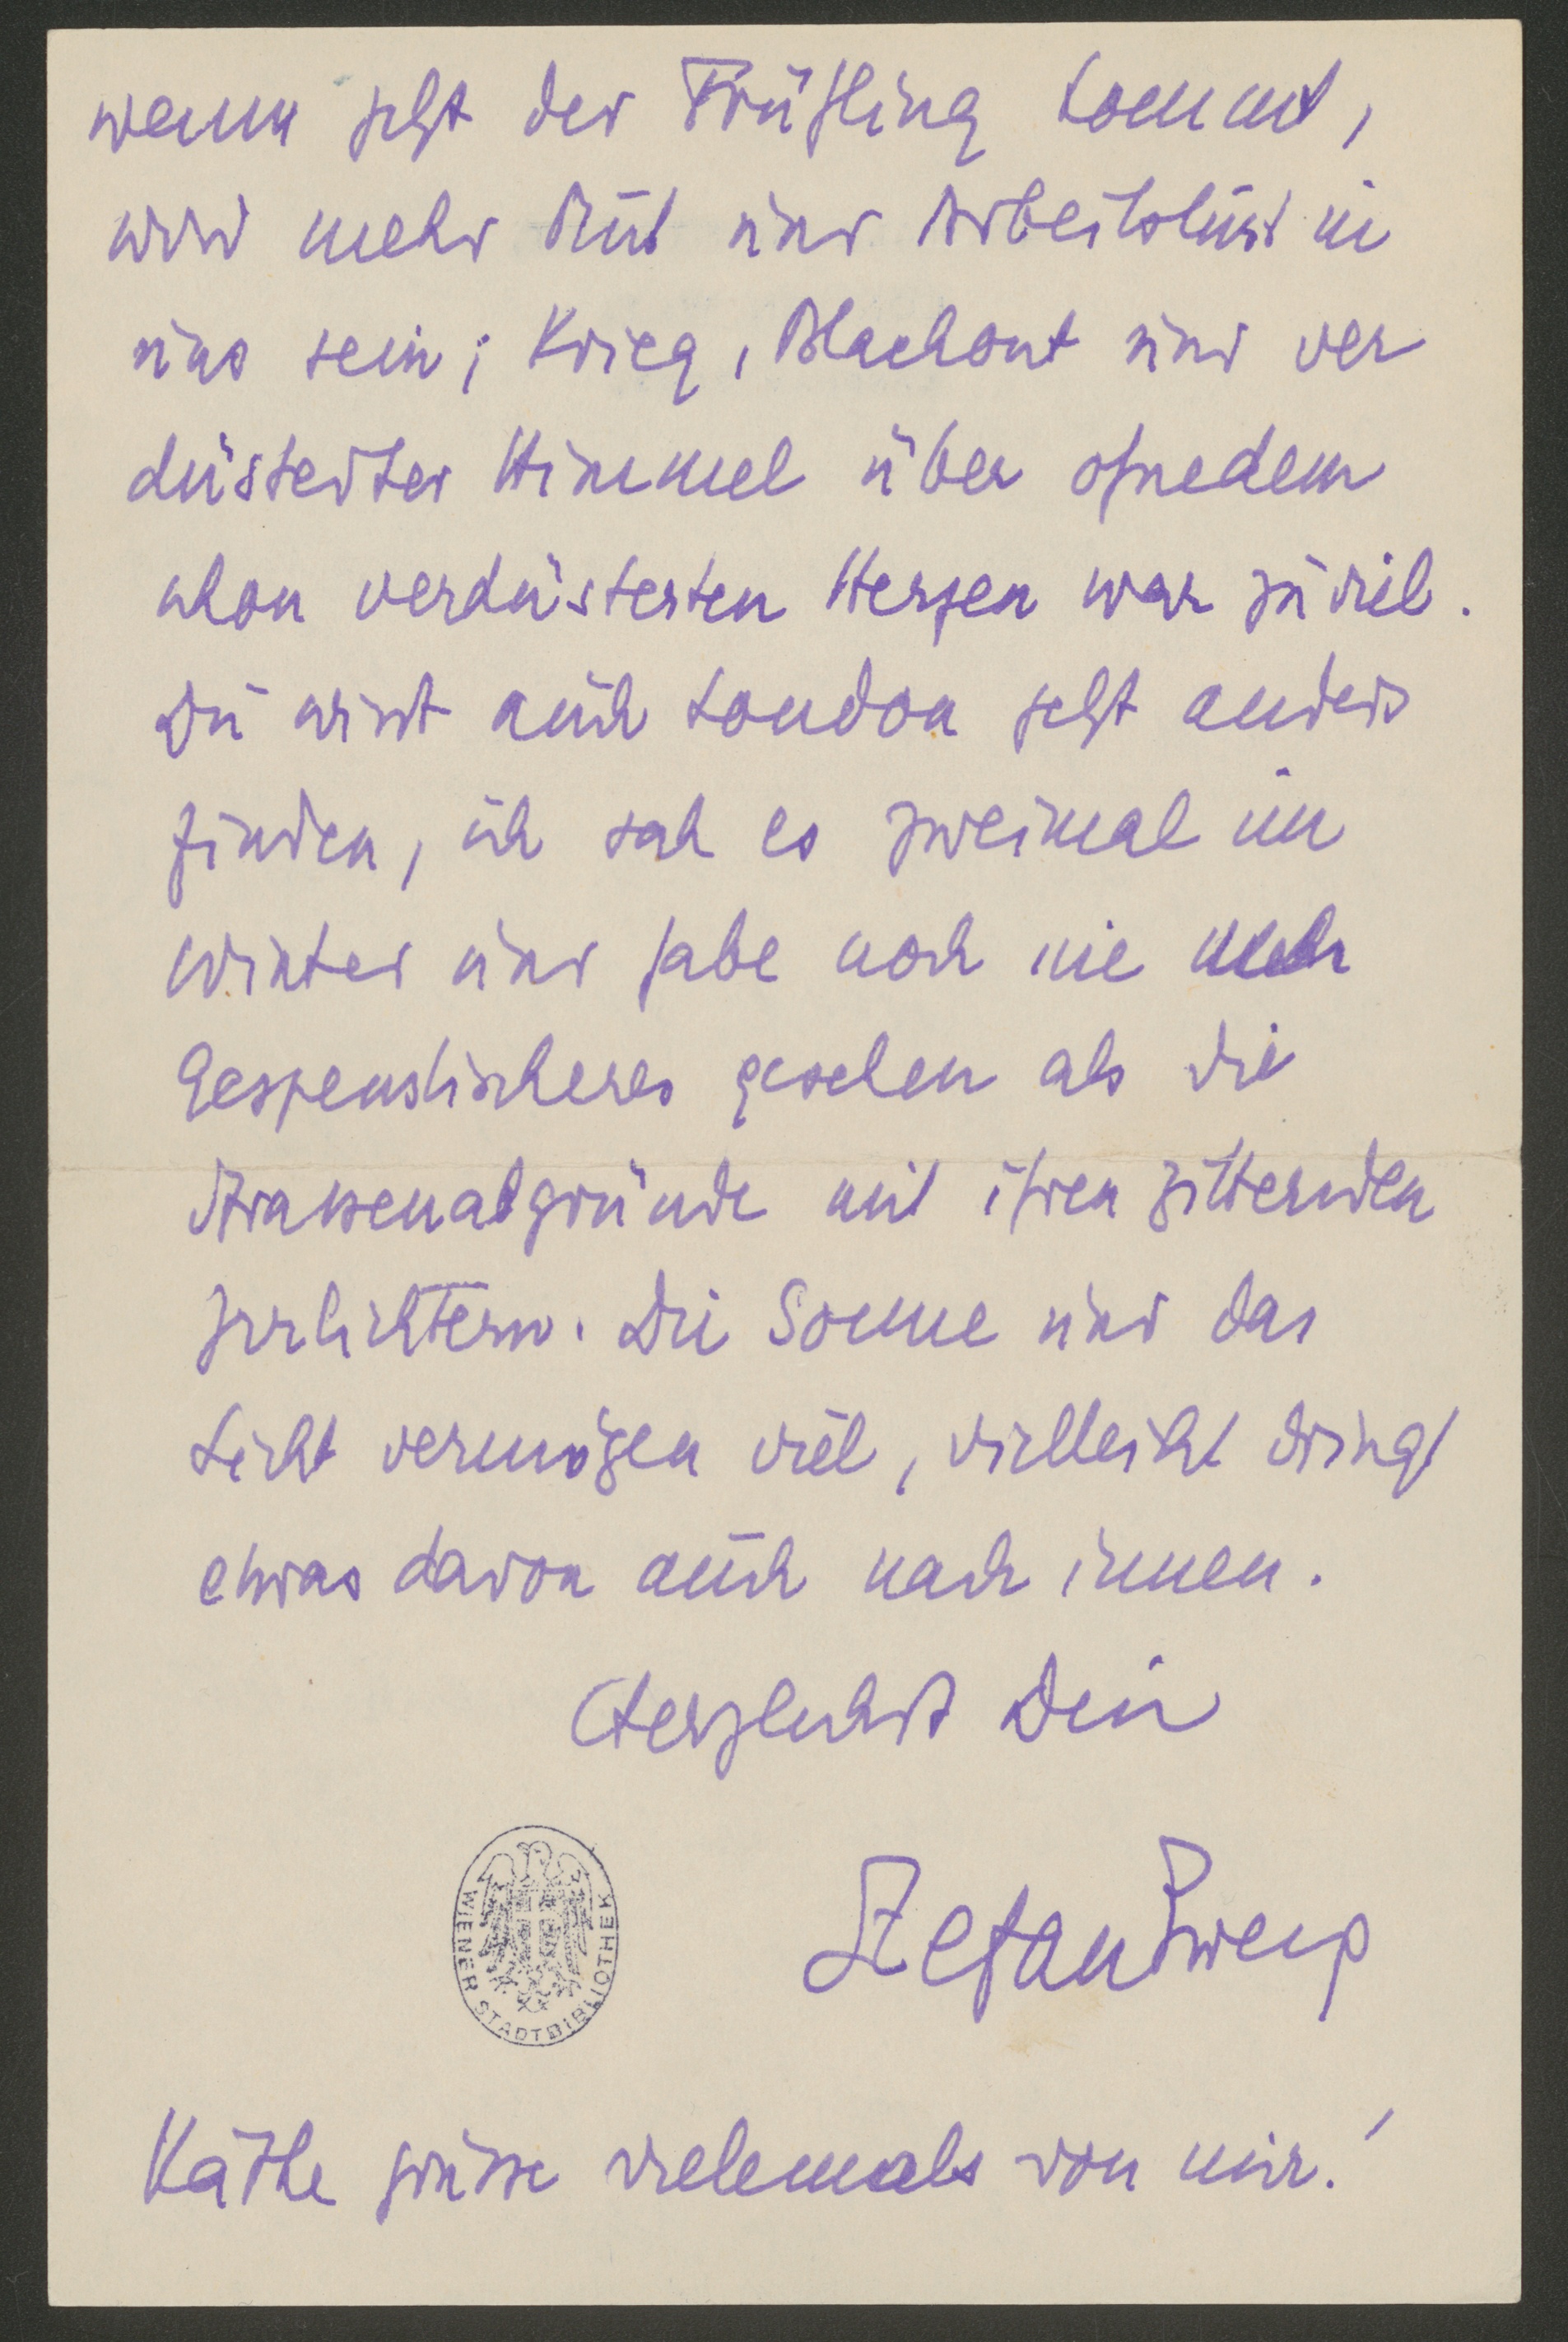 wenn jetzt der Frühling kommt,
wird mehr Mut und Arbeitslust in
uns sein; Krieg, Blackout und ver
düsterter Himmel über ohnedem
schon verdüsterten Herzen war zu viel.
Du wirst auch London jetzt anders
finden, ich sah es zweimal im
Winter und habe noch nie
Gespenstischeres gesehen als die
Strassenabgründe mit ihren zitternden
Irrlichtern. Die Sonne und das
Licht vermögen viel, vielleicht dringt
etwas davon auch nach innen.
Herzlichst Dein
Stefan Zweig
WIENER STADTBIBLIOTHEK
Käthe grüsse vielemals von mir!